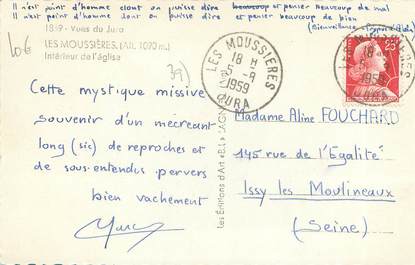 Il n'est point d'homme dont on puisse dire beaucoup et penser beaucoup de mal
Il n'est point d'homme dont on puisse dire et penser beaucoup de bien
(Bienveillance
1859 - Vues du Jura
LES MOUSSIÈRES. (Alt. 1070 m.)
Intérieur de l'église
LoG
39)
LES MOUSSIÈRES
18 H
5 - 9
1959
JURA
18 H
5 - 9
1959
JURA
25F
Cette mystique missive
souvenir d'un mécréant
long (sic) de reproches et
de sous-entendus pervers
bien vachement
Marc
Les Editions d'Art «B.J.» LAGNY
Madame Aline FOUCHARD
145 rue de l'Egalité
Issy les Moulineaux
(Seine)